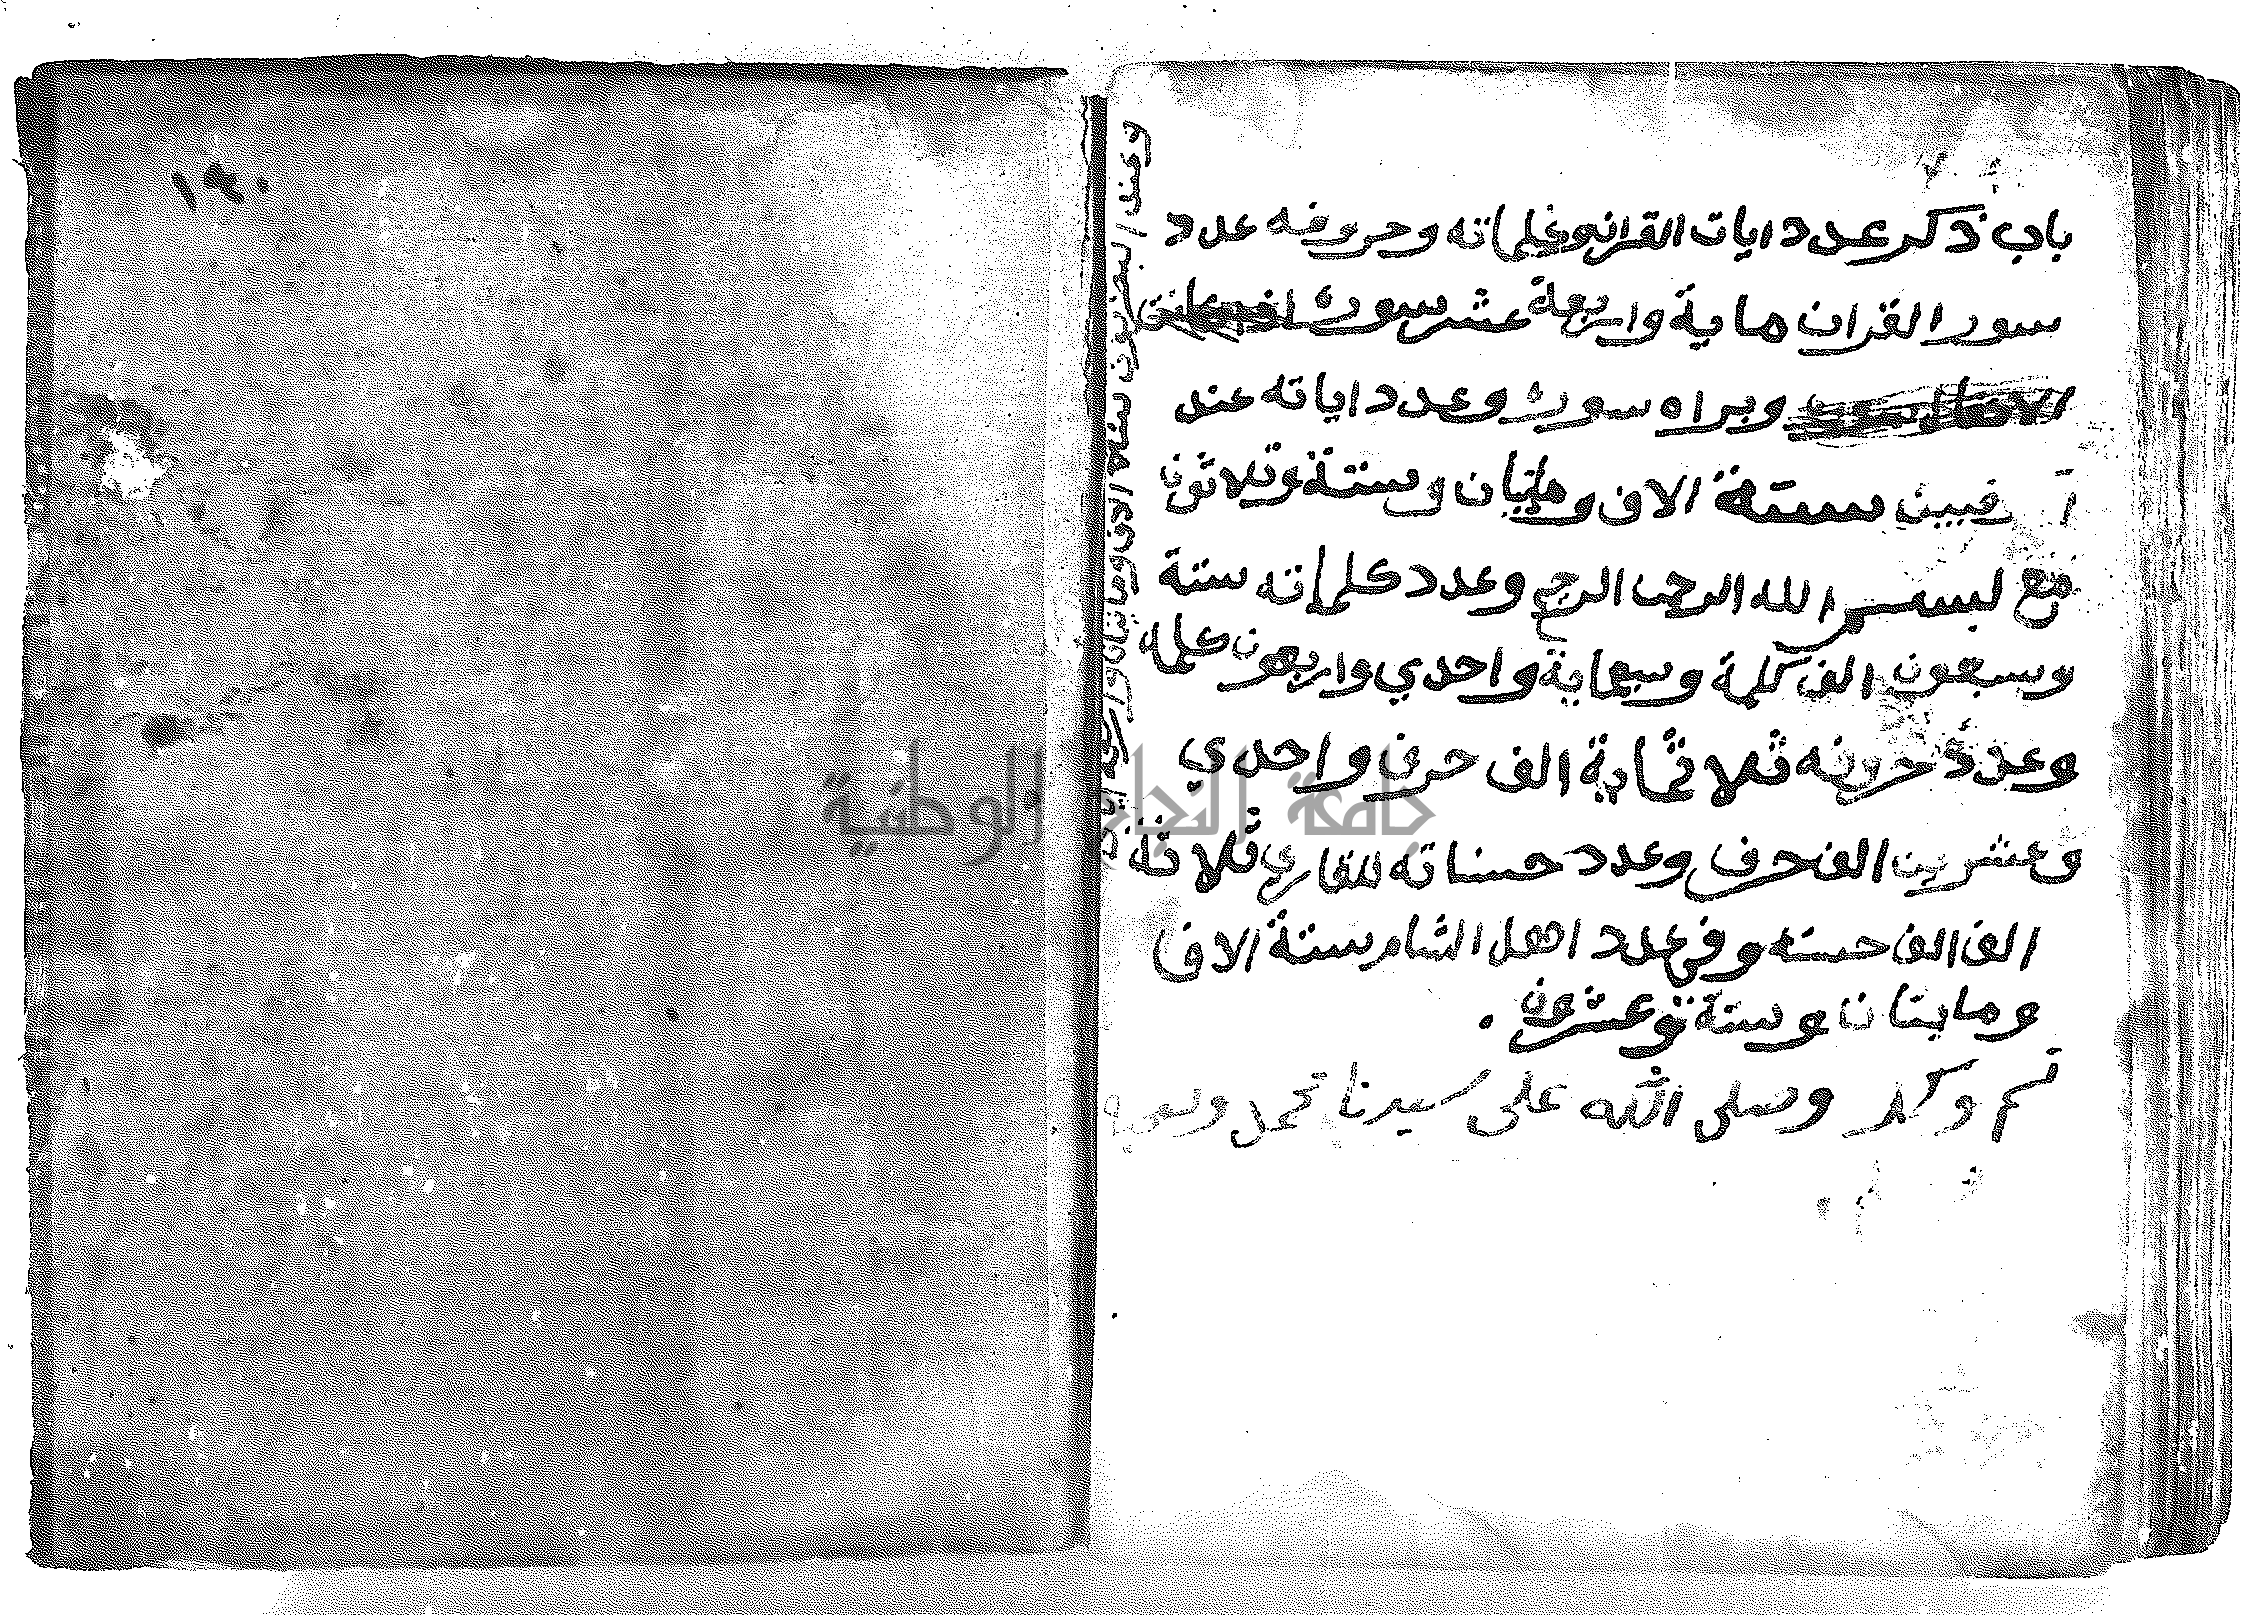 باب ذكر عدد ايات القران وكلماته وحروفه عدد
سور القران ماية واربعة عشر سورة
وبراه سورة وعدد اياته عند
مع بسم الله الرحمن الرحيم وعدد كلماته ستة
وسبعون الف كلمة وسبعماية واحدي واربعون كلمه
وعدد حروفه ثلاثماية الف حرف واحدي
وعشرين الف حرف وعدد حسناته للقاري ثلاثة
الف الف حسنه وفي عدد اهل الشام ستة الاف
ومايتان وستة وعشرون
تم وكمل وصلى الله على سيدنا محمد
وعند البصريون ستة الاف ومايتان واربع
١٩٠
جامعة النجاح الوطنية